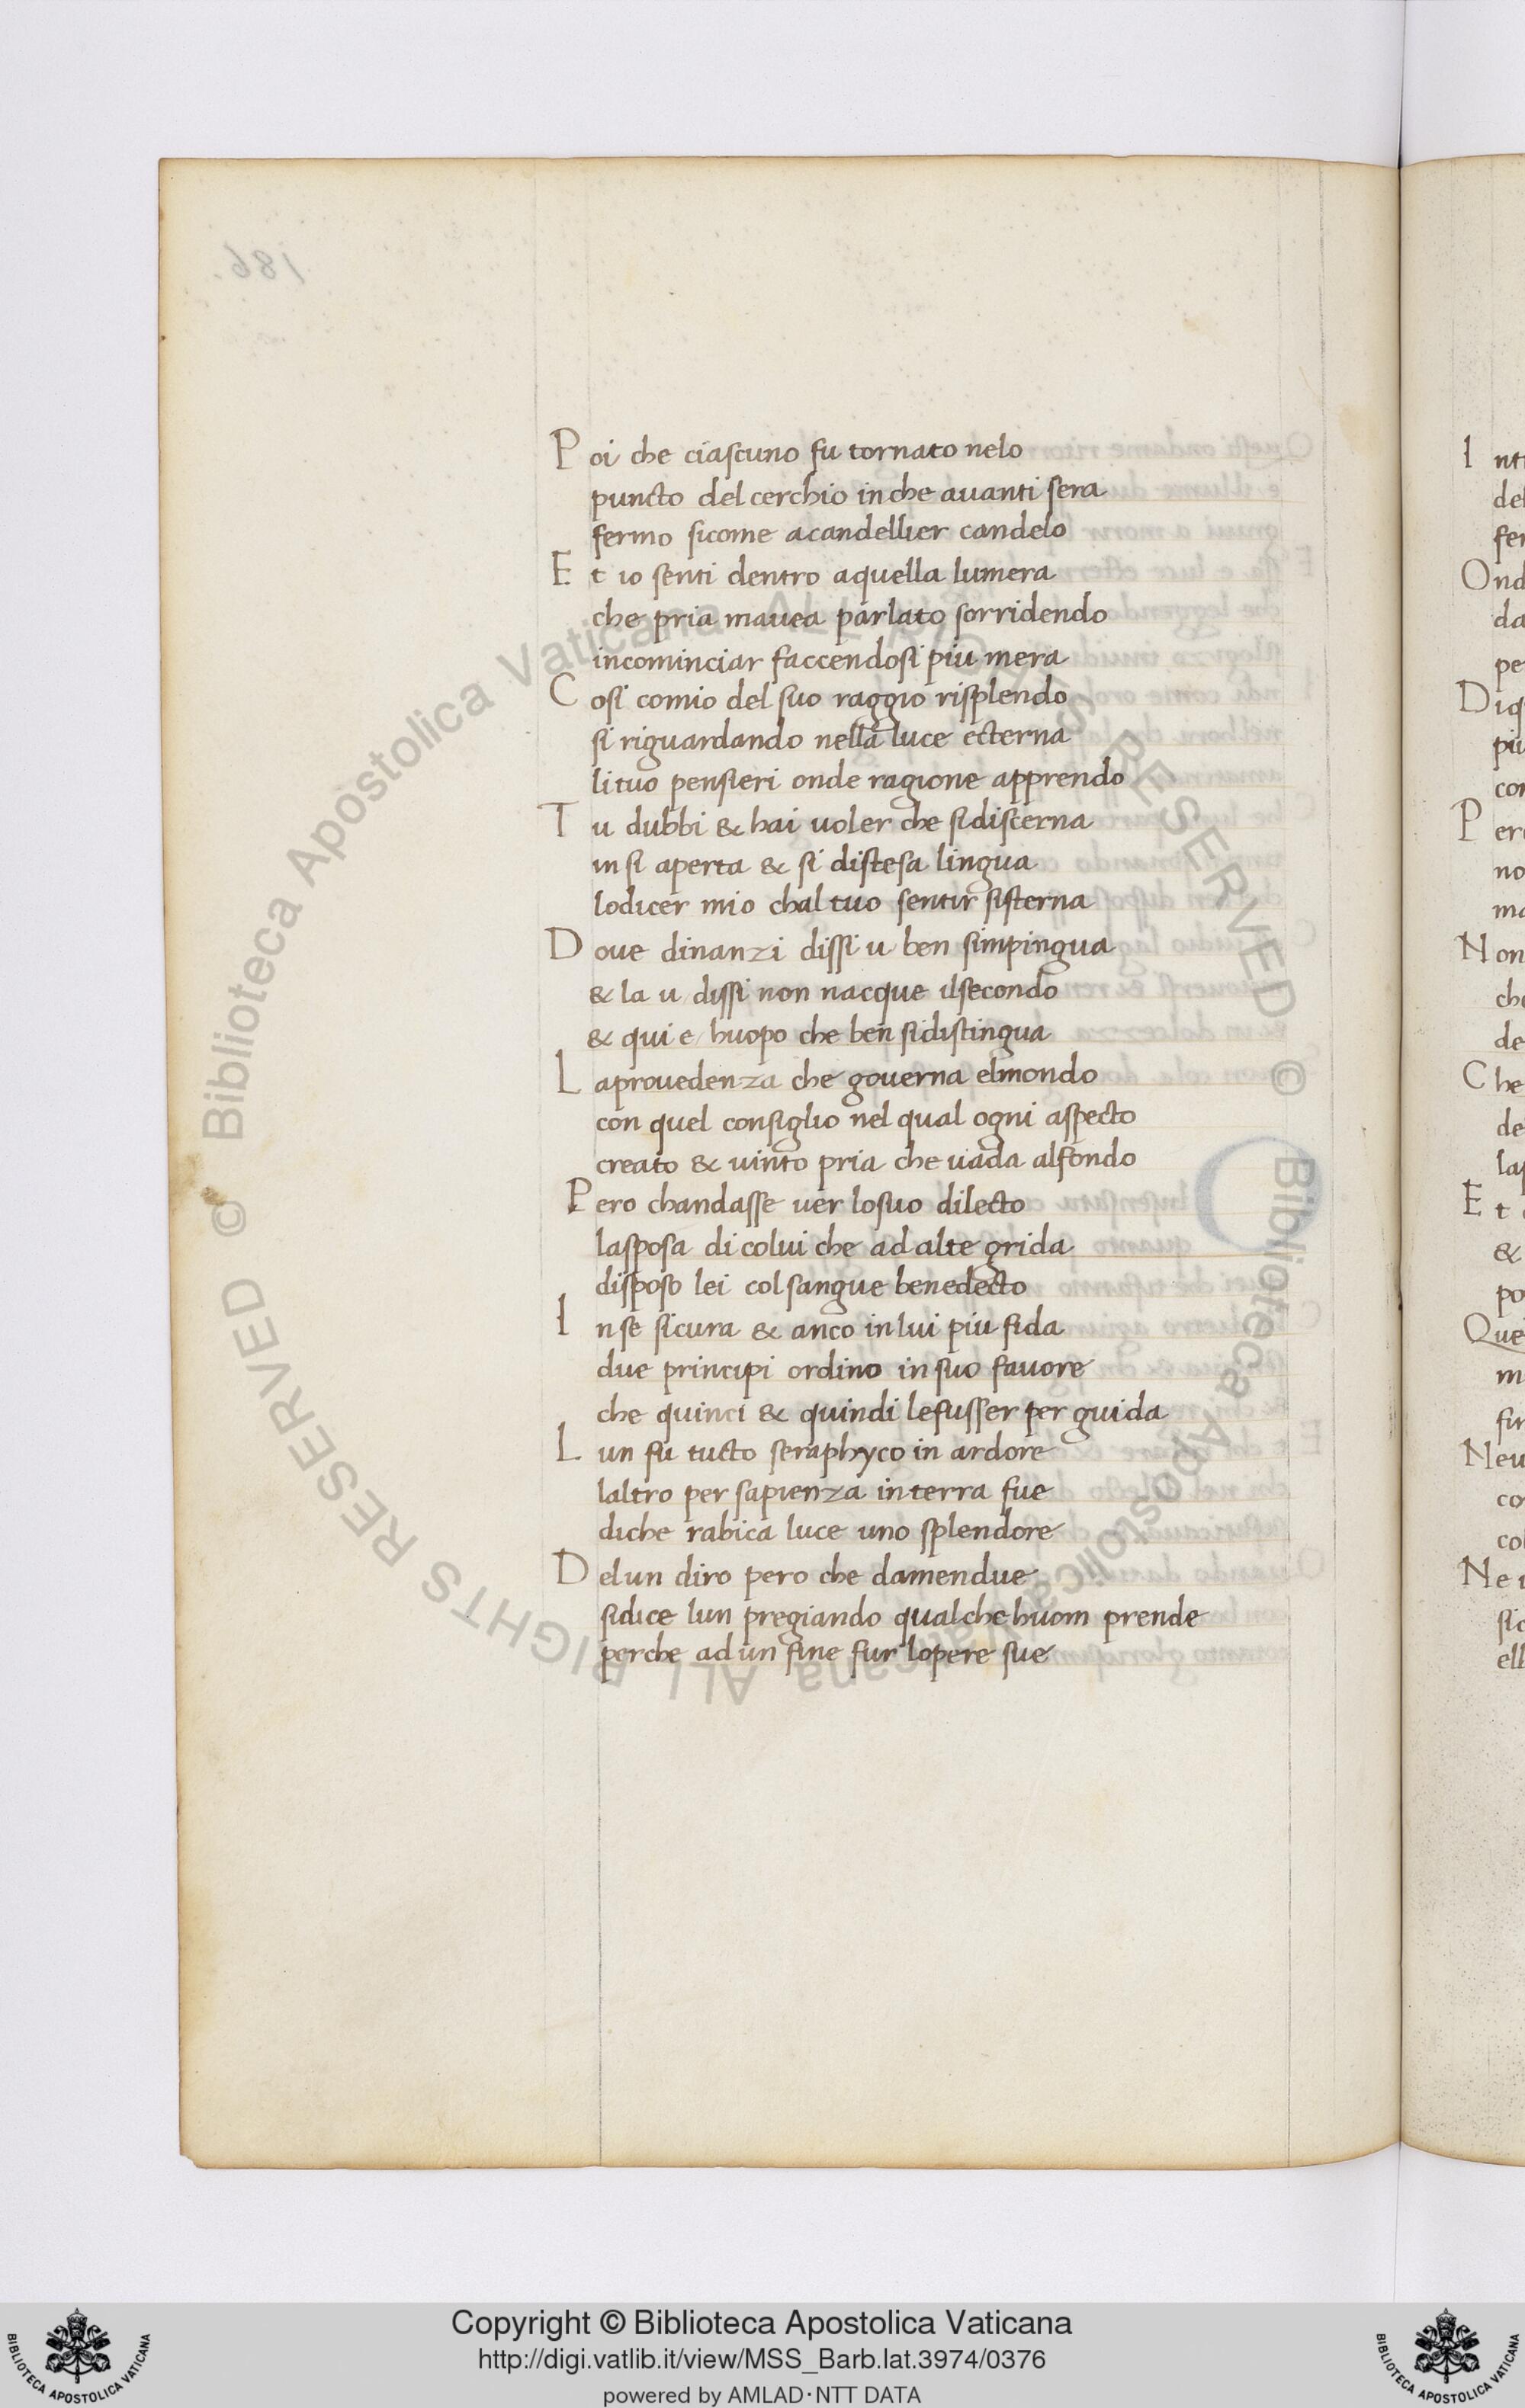 Poi che ciascuno fu tornato nelo
puncto del cerchio in che auanti sera
fermo sicome acandellier candelo
Et io senti dentro aquella lumera
che pria mauea parlato sorridendo
incominciar faccendosi piu mera
Cosi comio del suo raggio risplendo
si riguardando nella luce ecterna
li tuo pensieri onde ragione apprendo
Tu dubbi & hai uoler che si discerna
in si aperta & si distesa lingua
lo dicer mio chal tuo sentir sisterna
Doue dinanzi dissi u ben simpingua
& la u dissi non nacque il secondo
& qui e huopo che ben si distingua
La prouedenza che gouerna el mondo
con quel consiglio nel qual ogni aspecto
creato & uinto pria che uada al fondo
Pero chandasse uer lo suo dilecto
la sposa di colui che ad alte grida
disposo lei col sangue benedecto
In se sicura & anco in lui piu fida
due principi ordino in suo fauore
che quinci & quindi le fusser per guida
Lun fu tucto seraphyco in ardore
laltro per sapienza in terra fue
di che rabica luce uno splendore
Del un diro pero che damendue
si dice lun pregiando qual che huom prende
perche ad un fine fur lopere sue
186.
© Biblioteca Apostolica Vaticana ALL RIGHTS RESERVED © Biblioteca Apostolica Vaticana ALL RIGHTS RESERVED
Copyright © Biblioteca Apostolica Vaticana
http://digi.vatlib.it/view/MSS_Barb.lat.3974/0376
powered by AMLAD·NTT DATA
BIBLIOTECA APOSTOLICA VATICANA
BIBLIOTECA APOSTOLICA VATICANA